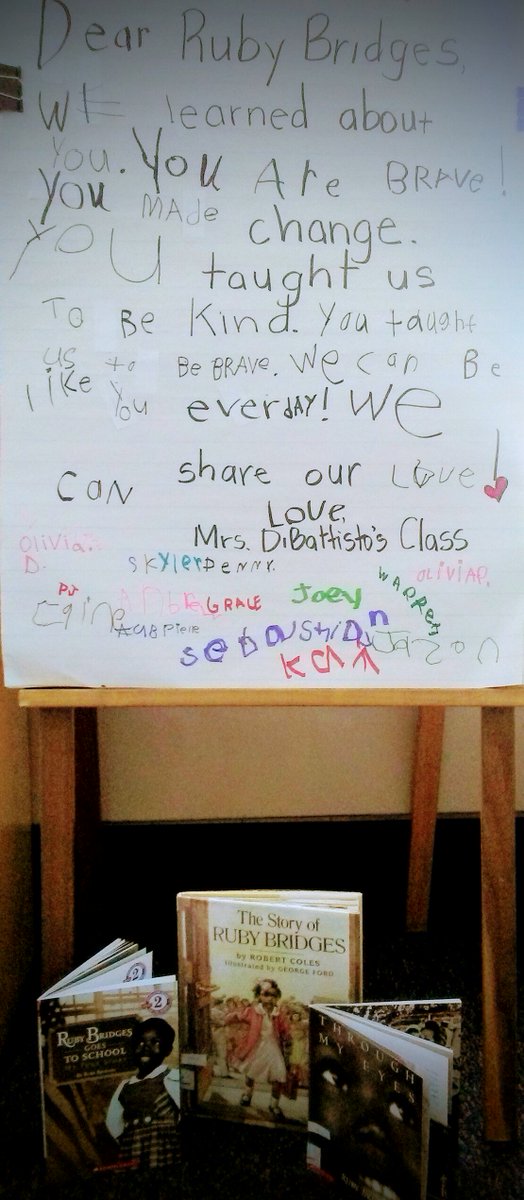 Dear Ruby Bridges,
WE learned about
you. You Are BRAVe!
You MAde change.
YOU taught us
To Be Kind. You taught
us to Be BRAVE. We can Be
like You everdAY! We
CAN share our LOVe!
LOVE,
Mrs. DiBattisto's Class
Olivia D.
SKYler
PENNY.
OLIVIA P.
PJ
GRACE
Joey
WARREN
sebastian
Jason
The Story of
RUBY BRIDGES
by ROBERT COLES
illustrated by GEORGE FORD
2
2
RUBY BRIDGES
GOES
TO SCHOOL
MY TRUE STORY
by RUBY BRIDGES
THROUGH
MY EYES